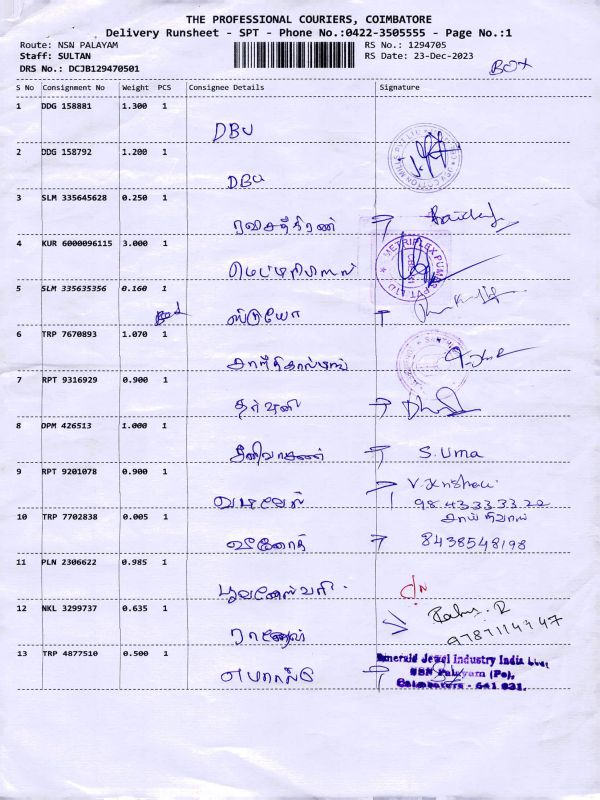 THE PROFESSIONAL COURIERS, COIMBATORE
Delivery Runsheet - SPT - Phone No.:0422-3505555 - Page No.:1
Route: NSN PALAYAM RS No.: 1294705
Staff: SULTAN RS Date: 23-Dec-2023
DRS No.: DCJB129470501 BOX
S No Consignment No Weight PCS Consignee Details Signature
1 DDG 158881 1.300 1
DBU
2 DDG 158792 1.200 1
DBU
3 SLM 335645628 0.250 1
4 KUR 6000096115 3.000 1
5 SLM 335635356 0.160 1
ஸ்டுயோ
6 TRP 7670893 1.070 1
7 RPT 9316929 0.900 1
தர்வனி
8 DPM 426513 1.000 1
சீனிவாசன் S. Uma
9 RPT 9201078 0.900 1
வடிவேல் 9843333322
10 TRP 7702838 0.005 1
வினோத் 8438548198
11 PLN 2306622 0.985 1
புவனேஸ்வரி DN
12 NKL 3299737 0.635 1
13 TRP 4877510 0.500 1
Emerald Jewel Industry India
NSN Palayam (Po),
Coimbatore - 641 031.